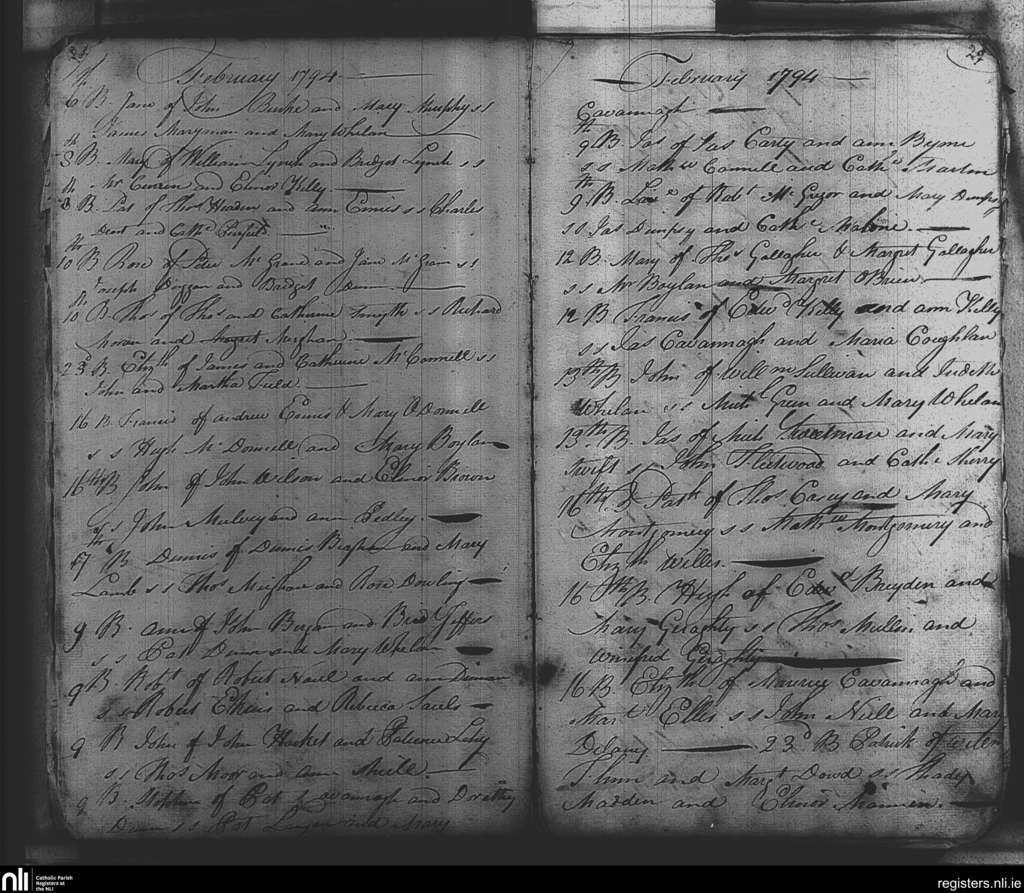 February 1794
6 B. Jane of John Burke and Mary Murphy ss
James Maryman and Mary Whelan
8 B. Mary of William Lynch and Bridget Lynch ss
Mr Curren and Elinor Kelly
8 B. Pat of Thos and ann Ennis ss Charles
Dent and Cathe
10 B Rose of Peter Mc Grane and Jane Mc ss
Joseph Duggan and Bridget Dunn
10 B Thos of Thos and Catharine Smyth ss Richard
Moran and
23d B. Elizth of James and Catherine Mc Connell ss
John and Martha Tield
16 B. Francis of andrew Ennis & Mary O Donnell
ss Hugh Mc Donnell and Mary Boylan
16th B John of John Wilson and Elinor Brown
ss John Mulvey and ann Pedley
B Dennis of Dennis and Mary
Lamb ss Thos Meighan and Rose Dowling
9 B. ann of John Bergan and Brid Geffers
ss Pat Dunn and Mary Whelan
9 B Robt of Robert and ann
ss Robert Ekins and Rebecca
9 B John of John Hacket and Patience
ss Thos Moor and ann
9 B. Stephen of Pat Cavanagh and Dorethy
Dunn ss Pat and Mary
29
February 1794
Cavanagh
9th B Jas of Jas Carty and ann Byrne
ss Mathw Connell and Cathe
9th B. Law of Robt Mc Gregor and Mary Dempsy
ss Jas Dempsy and Cathe Malone
12 B. Mary of Thos Gallagher & Margret Gallagher
ss Mr Boylan and Margret O Brien
12 B Francis of Edwd Kelly and ann Kelly
ss Jas Cavannagh and Maria Coughlan
13th B John of Willm Sullivan and Judith
Whelan ss Michl Green and Mary Whelan
13th B. Jas of Michl Troutman and Mary
Swift ss John Fleetwood and Cathe Sherry
16th B Patk of Thos Casey and Mary
Montgomery ss Mathw Montgomery and
Elizth Willes
16th B. Hugh of Edwd Brayden and
Mary Geraghty ss Thos Mullen and
Winefred Geraghty
16 B. Elizth of Maurice Cavannagh and
Mart Elles ss John Niell and Mary
Delany 23d B Patrick of
and Margt Dowd ss Thady
Madden and Elinor
nli
Catholic Parish
Registers at
the NLI
registers.nli.ie